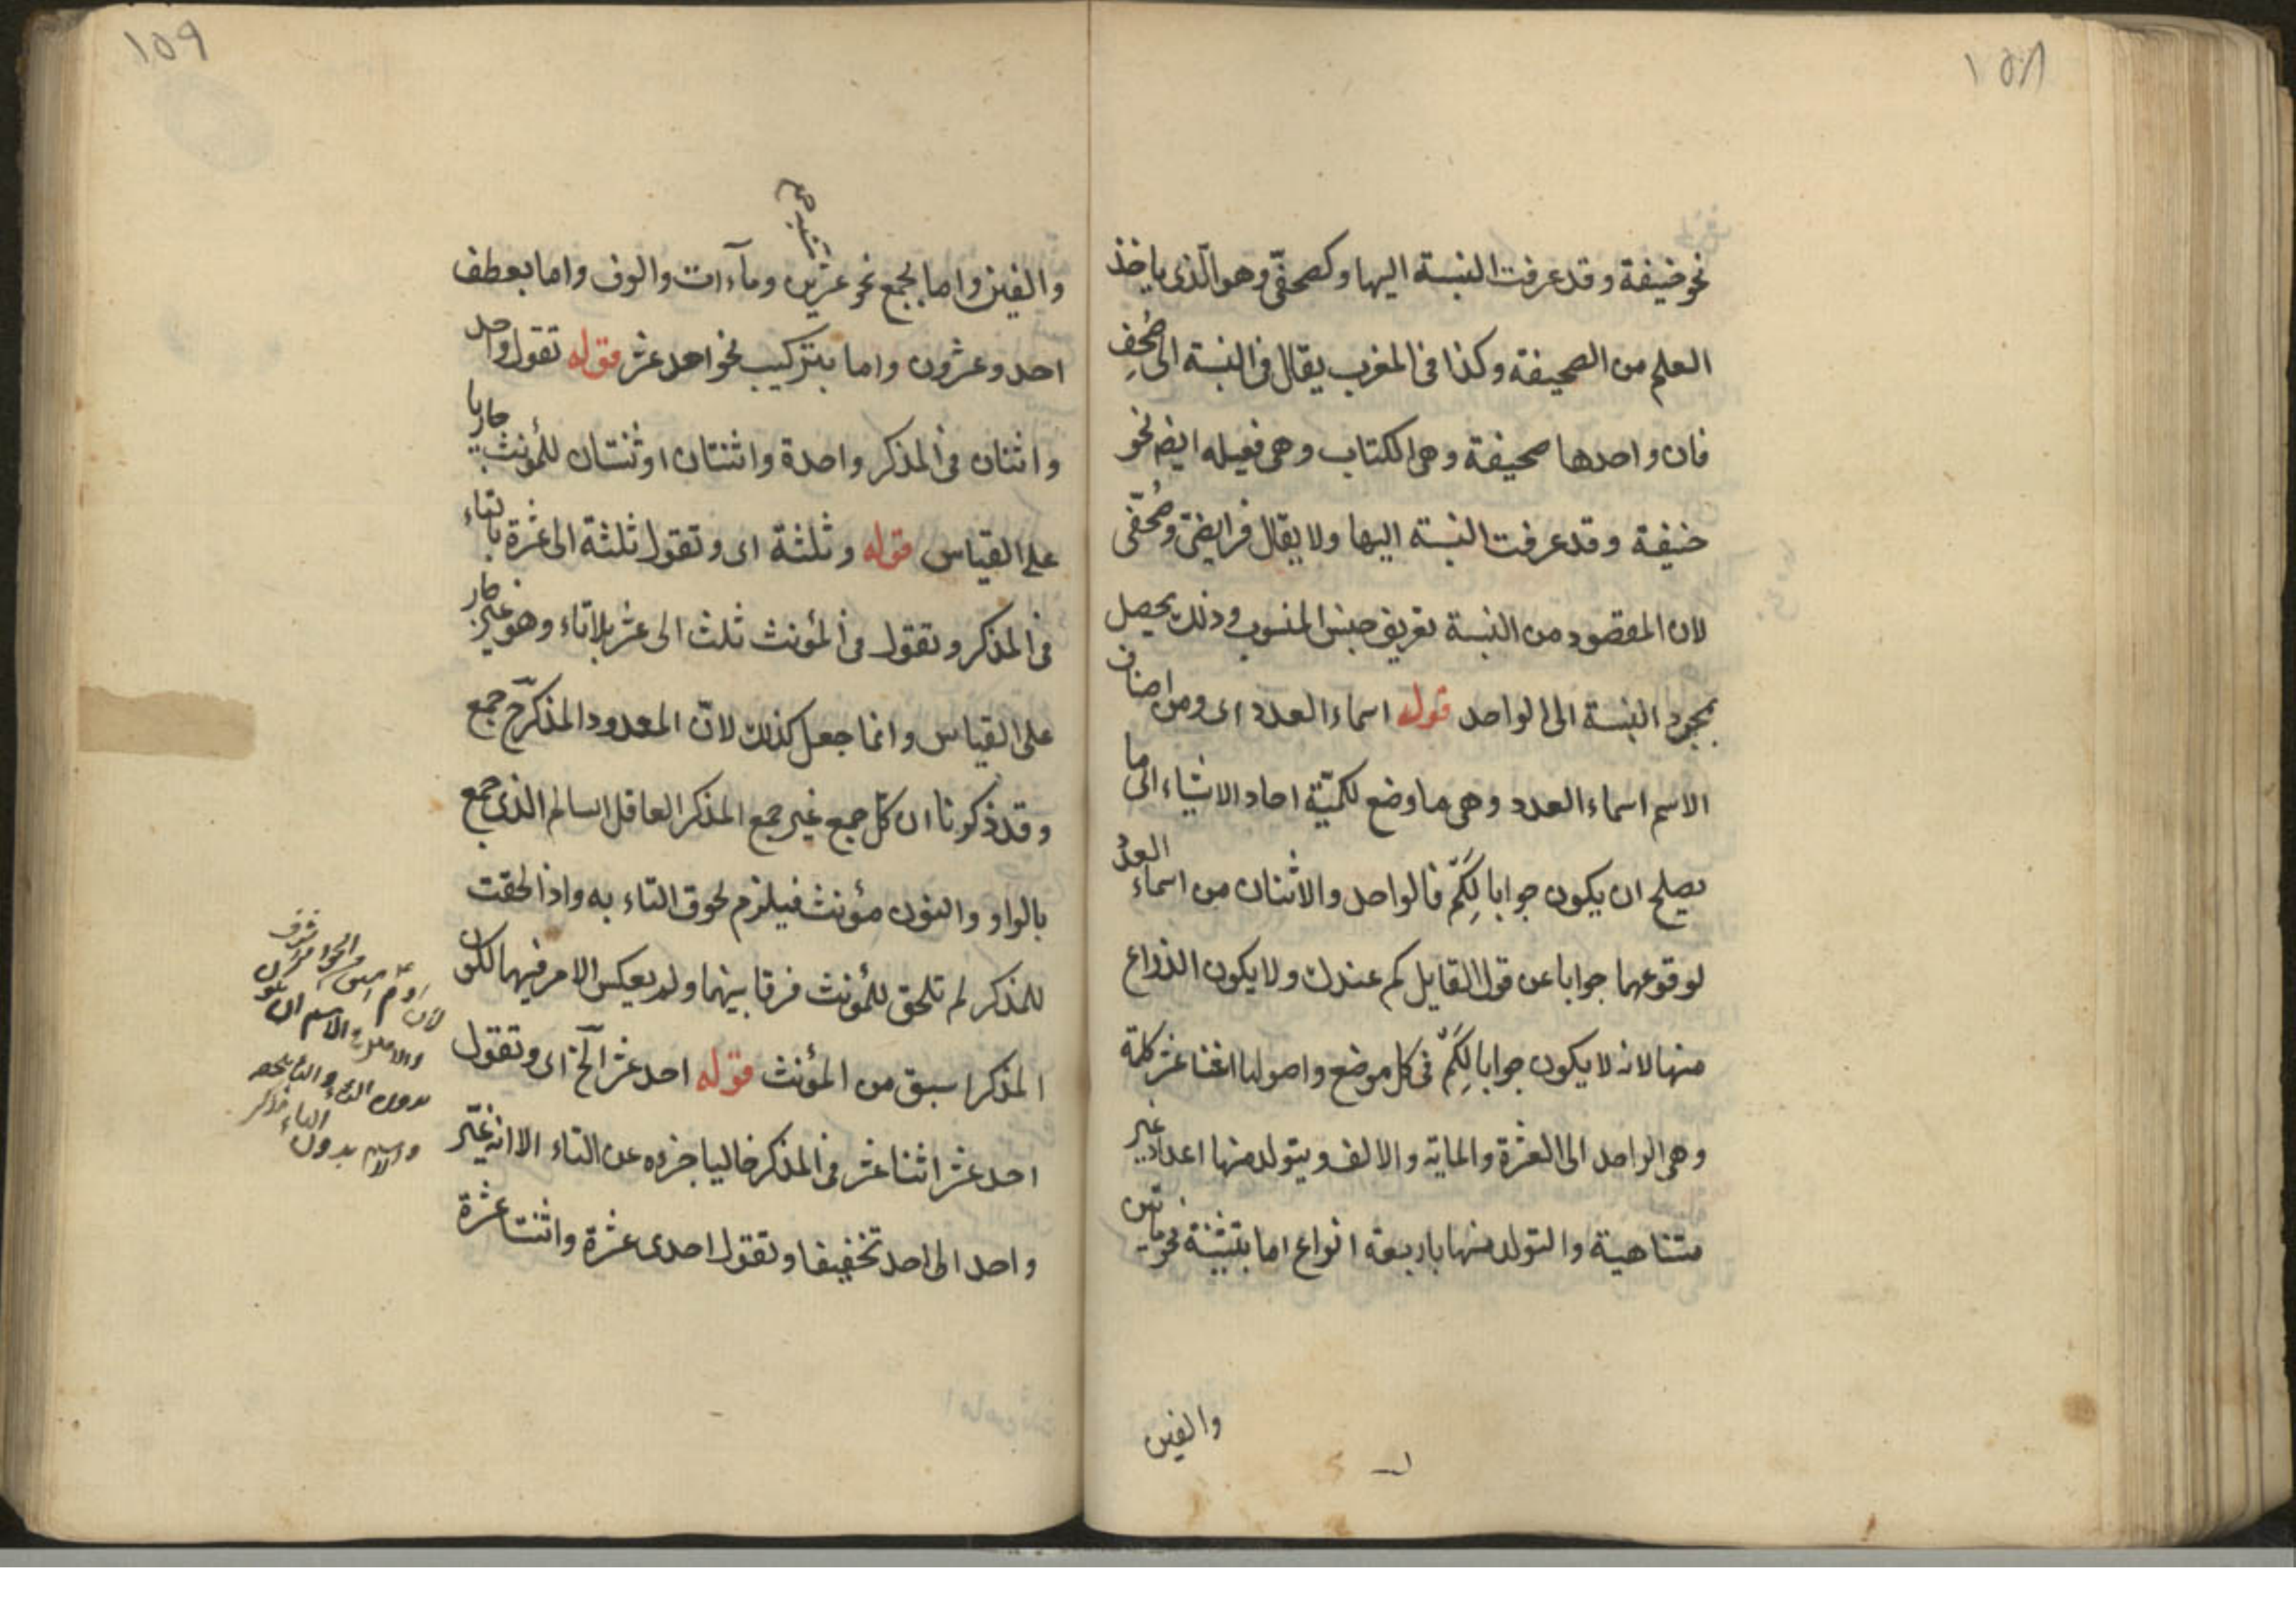 ١٥٨
نحو حنيفة وقد عرفت النسبة اليها وكصحفىّ وهو الّذى ياخذ
العلم من الصحيفة وكذا فى المغرب يقال فى النسبة الى صُحُفٍ
فان واحدها صحيفة وهى الكتاب وهى فعيله ايضا نحو
حنيفة وقد عرفت النسبة اليها ولا يقال فرايضىّ وصُحُفّى
لان المقصود من النسبة تعريف جنس المنسوب وذلك يحصل
بمجرد النسبة الى الواحد قوله اسماء العدد اى ومن اصناف
الاسم اسماء العدد وهى ما وضع لكميّة احاد الاشياء اى ما
يصلح ان يكون جوابا لِكَمّ فالواحد والاثنان من اسماء العدد
لوقوعهما جوابا عن قول القايل كم عندك ولا يكون الذراع
منها لانه لا يكون جوابا لِكَمْ فى كل موضع واصولها اثنا عشر كلمة
وهى الواحد الى العشرة والماية والالف ويتولد منها اعداد غير
متناهية والتولد منها باربعة انواع اما بتثنية نحو مايتين
والفين
١٥٩
والفين واما بجمع نحو عشرين ومآءات والوف واما بعطف
احد وعشرون واما بتركيب نحو احد عشر قوله تقول واحد
واثنان فى المذكر واحدة واثنتان او ثنتان للمؤنث جاريا
على القياس قوله وثلثة اى وتقول ثلثة الى عشرة بالتاء
فى المذكر وتقول فى المؤنث ثلث الى عشر بلا تاء وهو غير جار
على القياس وانما جعل كذلك لانّ المعدود المذكر جمع
وقد ذكونا ان كلّ جمع غير جمع المذكر العاقل السالم الذى جمع
بالواو والنون مؤنث فيلزم لحوق التاء به واذا لحقت
للمذكر لم تلحق للمؤنث فرقا بينهما ولم يعكس الامر فيهما لكون
المذكر اسبق من المؤنث قوله احد عشر الخ اى وتقول
احد عشر اثنا عشر فى المذكر خاليا جزءه عن التاء الا انه غيّر
واحد الى احد تخفيفا وتقول احدى عشرة واثنتا عشرة